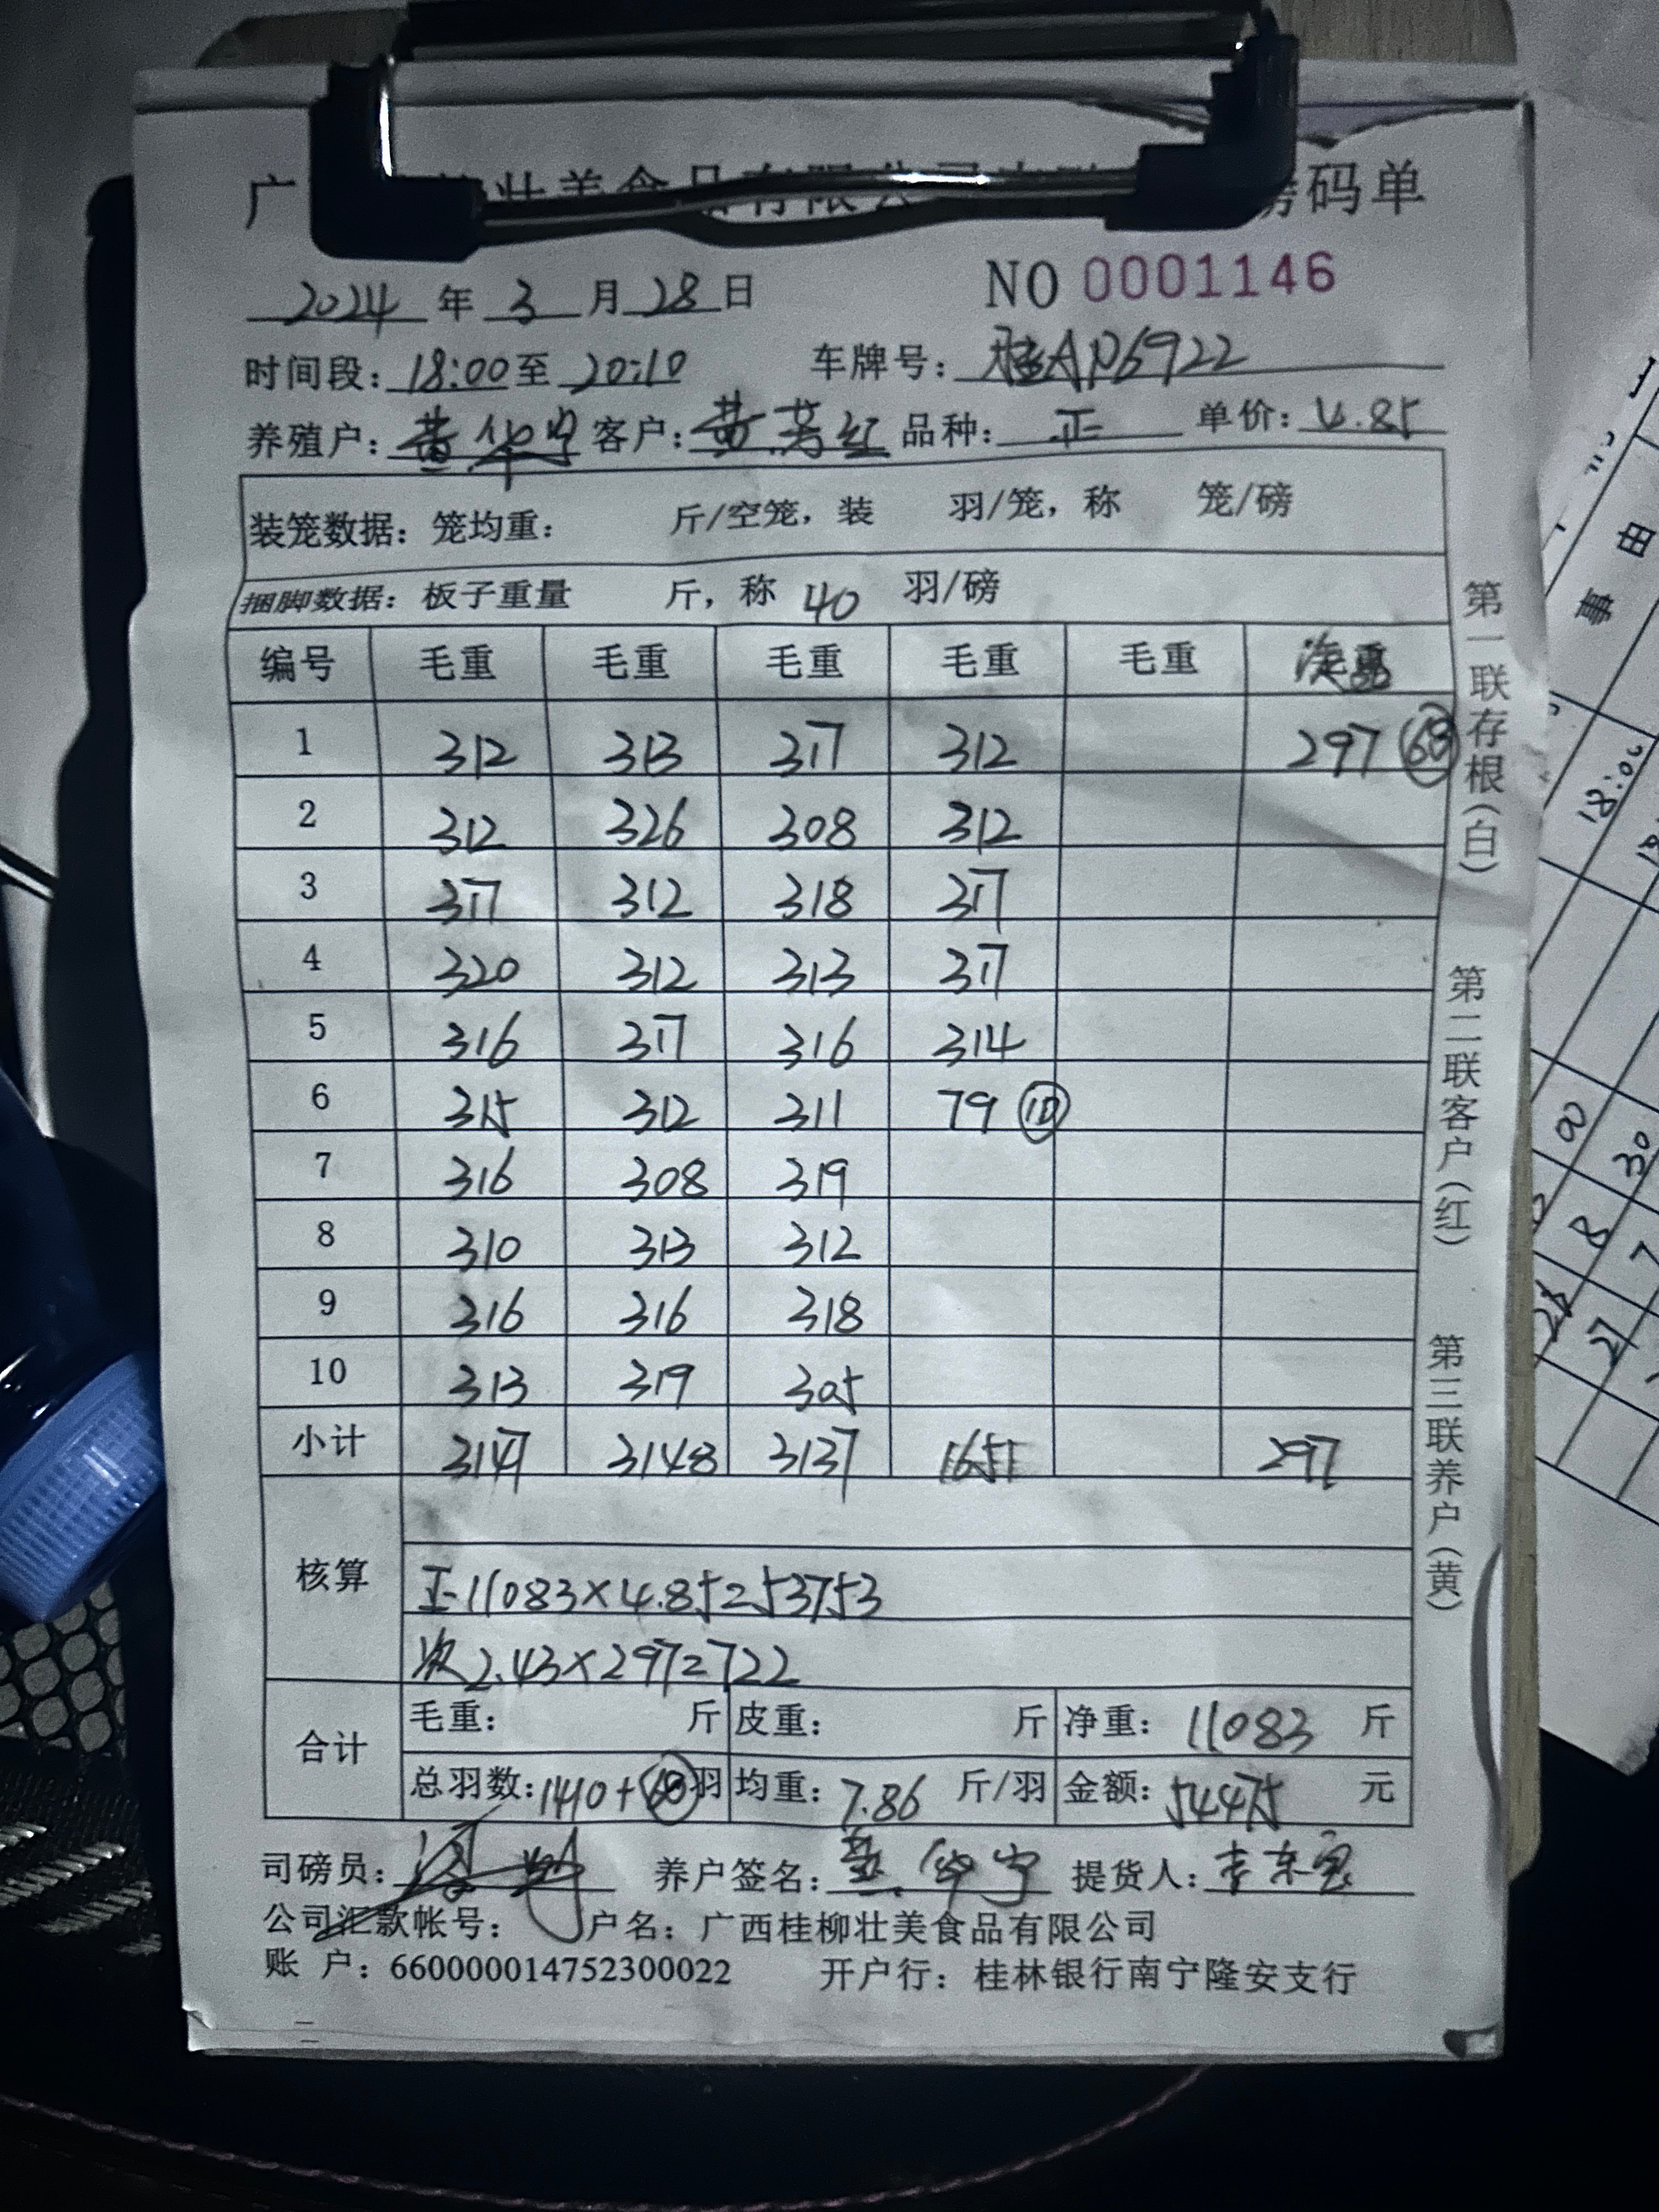 广 壮美食品有限公司 磅码单
2024 年 3 月 28 日 NO 0001146
时间段: 18:00 至 20:10 车牌号: 桂AP6922
养殖户: 黄华宁 客户: 黄芳红 品种: 正 单价: 4.85
装笼数据: 笼均重: 斤/空笼, 装 羽/笼, 称 笼/磅
捆脚数据: 板子重量 斤, 称 40 羽/磅
编号 毛重 毛重 毛重 毛重 毛重
1 312 313 317 312 297 68
2 312 326 308 312
3 317 312 318 317
4 320 312 313 317
5 316 317 316 314
6 315 312 311 79 10
7 316 308 319
8 310 313 312
9 316 316 318
10 313 319 305
小计 3147 3148 3137 1651 297
核算
正 11083×4.85=53753
次 2.43×297=722
合计
毛重: 斤 皮重: 斤 净重: 11083 斤
总羽数: 1410+68 羽 均重: 7.86 斤/羽 金额: 54475 元
司磅员: 养户签名: 黄华宁 提货人:
公司汇款帐号: 户名: 广西桂柳壮美食品有限公司
账 户: 660000014752300022 开户行: 桂林银行南宁隆安支行
第一联存根(白)
第二联客户(红)
第三联养户(黄)
事由
18:00
30
8
7